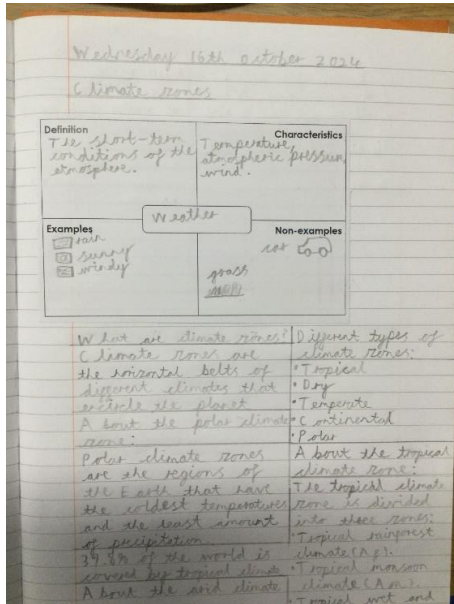 Wednesday 16th october 2024
Climate zones
Definition
The short-term
conditions of the
atmosphere.
Characteristics
Temperature,
atmospheric pressure,
wind.
Weather
Examples
rain
sunny
windy
Non-examples
car
grass
What are climate zones?
Climate zones are
the horizontal belts of
different climates that
encircle the planet
About the polar climate
zone:
Polar climate zones
are the regions of
the Earth that have
the coldest temperatures
and the least amount
of precipitation
39.8% of the world is
covered by tropical climate
About the arid climate
Different types of
climate zones:
• Tropical
• Dry
• Temperate
• Continental
• Polar
About the tropical
climate zone:
The tropical climate
zone is divided
into three zones:
• Tropical rainforest
climate (Af).
• Tropical monsoon
climate (Am).
• Tropical wet and